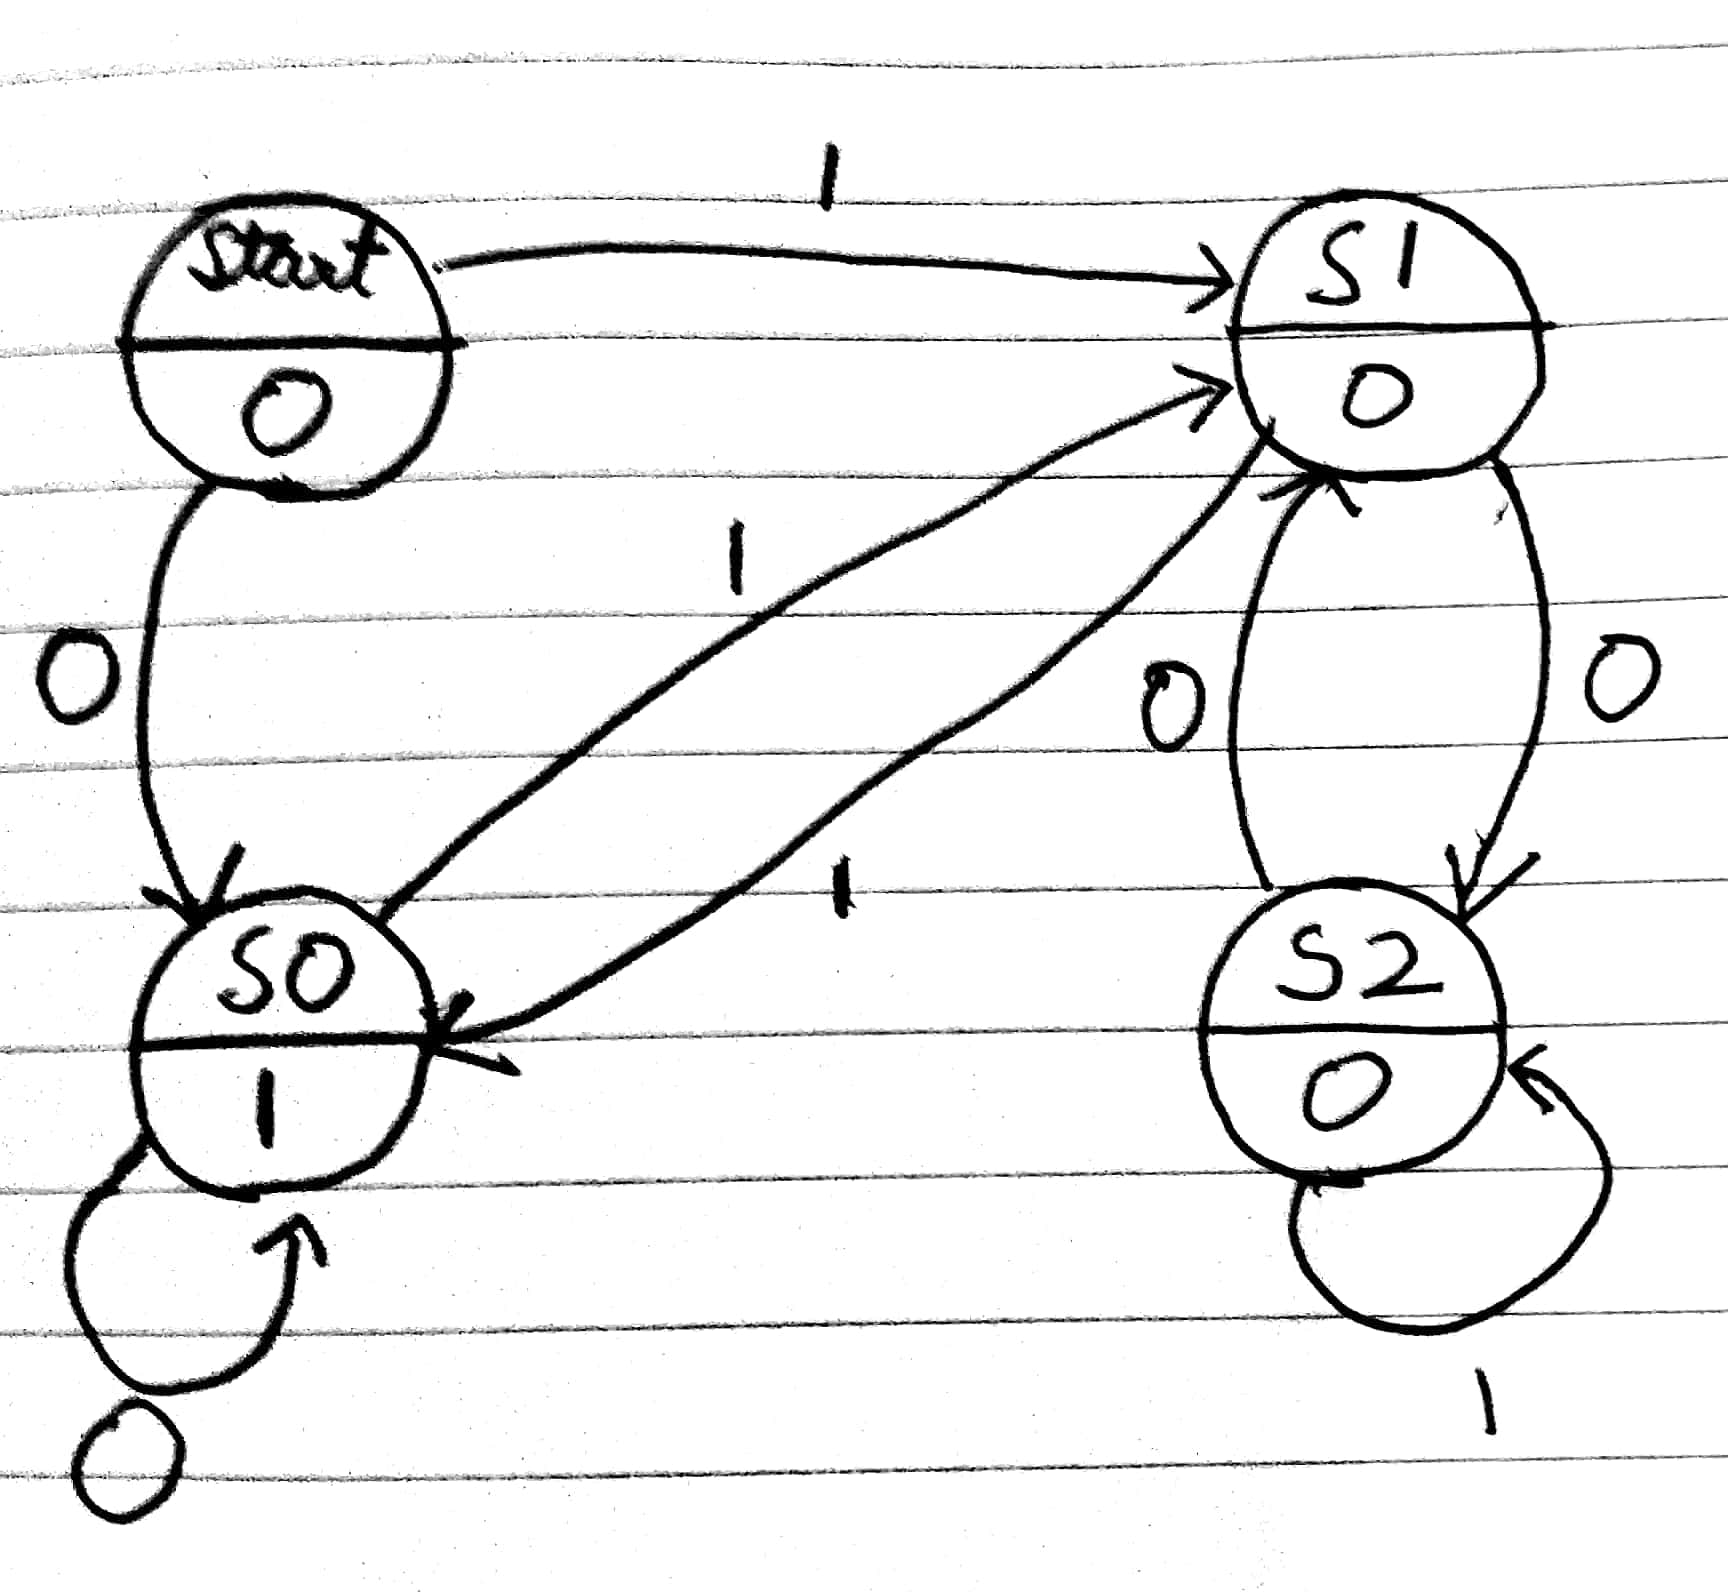 1
Start
0
S1
0
1
0
0
0
1
S0
1
S2
0
0
1